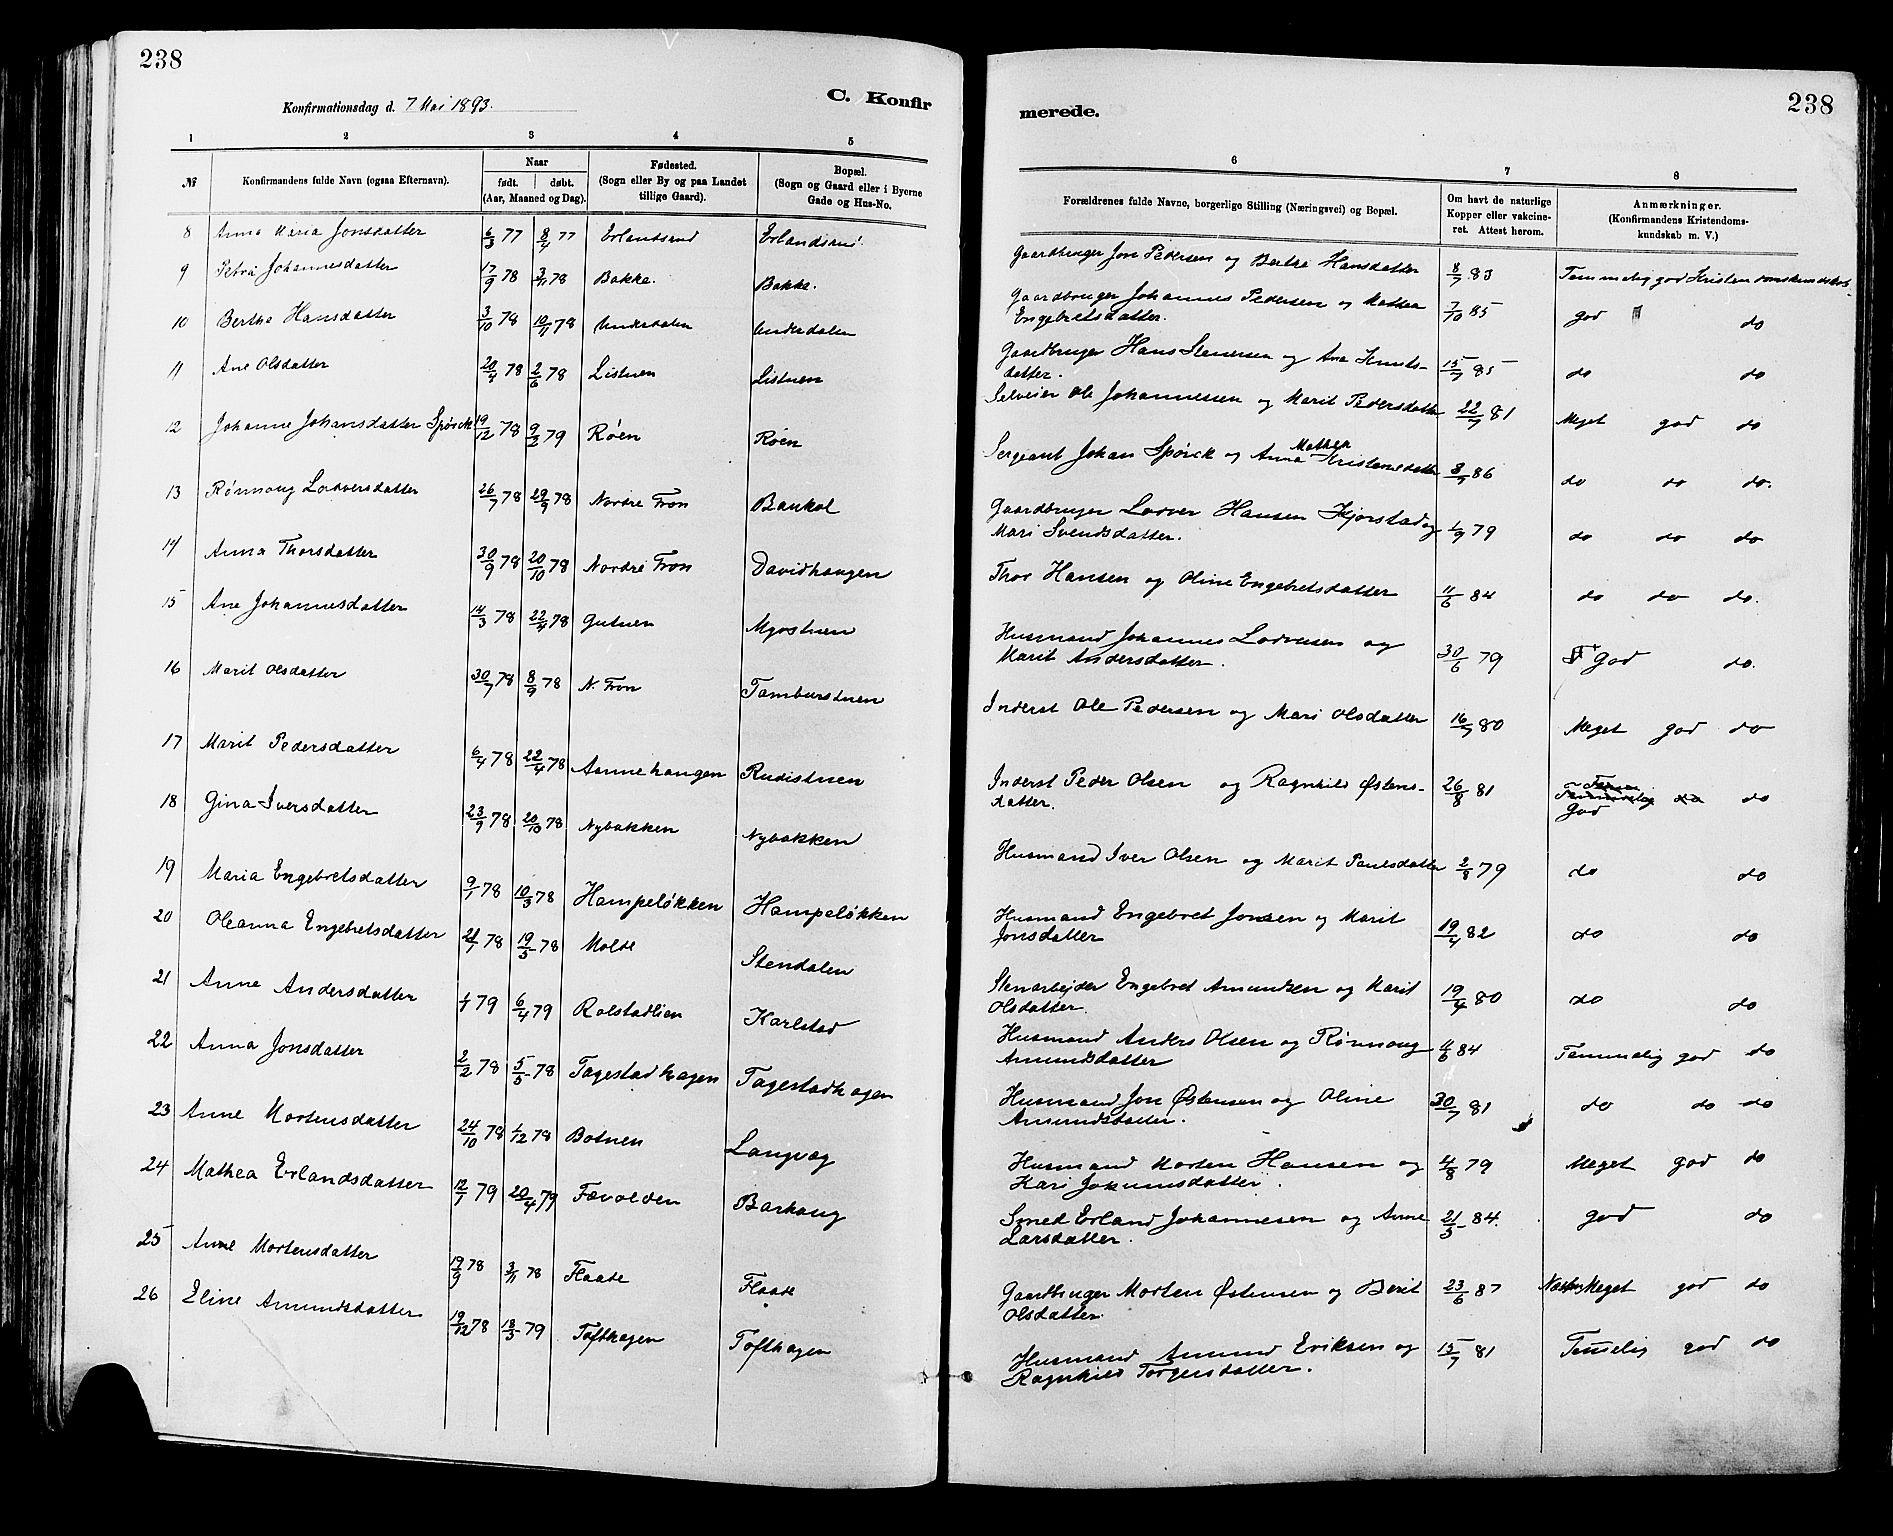 238
Konfirmationsdag d. 7 Mai 1893.
C. Konfir
1 2 3 4 5
№ Konfirmandens fulde Navn (ogsaa Efternavn). Naar født. døbt. (Aar, Maaned og Dag). Fødested. (Sogn eller By og paa Landet tillige Gaard). Bopæl. (Sogn og Gaard eller i Byerne Gade og Hus-No.
8 Anna Maria Jonsdatter 6/3 77 8/4 77 Erlandsrud Erlandsrud
9 Petra Johannesdatter 17/9 78 3/11 78 Bakke. Bakke.
10 Berthe Hansdatter 3/10 78 10/11 78 Underdalen Underdalen
11 Ane Olsdatter 20/4 78 2/6 78 Listuen Listuen
12 Johanne Johansdatter Spörck 19/12 78 9/2 79 Røen Røen
13 Rønnoug Lodversdatter 26/7 78 29/9 78 Nordre Fron Baukol
14 Anna Thorsdatter 30/9 78 20/10 78 Nordre Fron Davidhaugen
15 Ane Johannesdatter 14/3 78 22/4 78 Gutuen Myrstuen
16 Marit Olsdatter 30/7 78 8/9 78 N. Fron Tamburstuen
17 Marit Pedersdatter 6/4 78 22/4 78 Aannehaugen Rudistuen
18 Gina Iversdatter 23/9 78 20/10 78 Nybakken Nybakken
19 Maria Engebretsdatter 9/1 78 10/3 78 Hampeløkken Hampeløkken
20 Oleanna Engebretsdatter 21/1 78 19/5 78 Molde Stendalen
21 Anne Andersdatter 1/1 79 6/4 79 Rolstadlien Karlstad
22 Anna Jonsdatter 2/2 78 5/5 78 Tagestadhagen Tagestadhagen
23 Anne Mortensdatter 24/10 78 1/12 78 Botnen Langvag
24 Mathea Erlandsdatter 12/1 79 20/4 79 Fævolden Barhaug
25 Anne Mortensdatter 19/9 78 3/11 78 Flaate Flaate
26 Eline Amundsdatter 19/12 78 18/5 79 Tofthagen Tofthagen
238
merede.
6 7 8
Forældrenes fulde Navne, borgerlige Stilling (Næringsvei) og Bopæl. Om havt de naturlige Kopper eller vakcineret. Attest herom. Anmærkninger. (Konfirmandens Kristendomskundskab m. V.)
Gaardbruger Jon Pedersen og Berthe Hansdatter 8/7 83 Temmelig god Kristendomskundskab
Gaardbruger Johannes Pedersen og Mathea
Engebretsdatter. 7/10 85 god do
Gaardbruger Hans Stenersen og Ane Knuts-
datter. 15/7 85 do do
Selveier Ole Johannessen og Marit Pedersdatter 22/7 81 Meget god do
Sergeant Johan Spörck og Anna Mathea Kristensdatter 3/7 86 do do do.
Gaardbruger Lodver Hansen Kjorstad og
Mari Svendsdatter. 1/9 79 do do do
Thor Hansen og Oline Engebretsdatter 11/6 84 do do do.
Husmand Johannes Lodversen og
Marit Andersdatter. 30/6 79 T god do.
Inderst Ole Pedersen og Mari Olsdatter 16/7 80 Meget god do
Inderst Peder Olsen og Ragnhild Østens-
datter. 26/8 81 Temmelig do God do
Husmand Iver Olsen og Marit Paulsdatter 2/8 79 do do
Husmand Engebret Jonsen og Marit
Jonsdatter 19/4 82 do do
Stenarbejder Engebret Amundsen og Marit
Olsdatter. 19/4 80 do do
Husmand Anders Olsen og Rønnoug
Amundsdatter 11/6 84 Temmelig god do
Husmand Jon Østensen og Oline
Amundsdatter. 30/7 81 do do do
Husmand Morten Hansen og
Kari Johannesdatter. 4/8 79 Meget god do
Smed Erland Johannesen og Anne
Larsdatter. 21/5 84. god do
Gaardbruger Morten Østensen og Berit
Olsdatter. 23/6 87 Næsten Meget god do
Husmand Amund Eriksen og
Ragnhild Torgersdatter. 15/7 81 Temelig god do